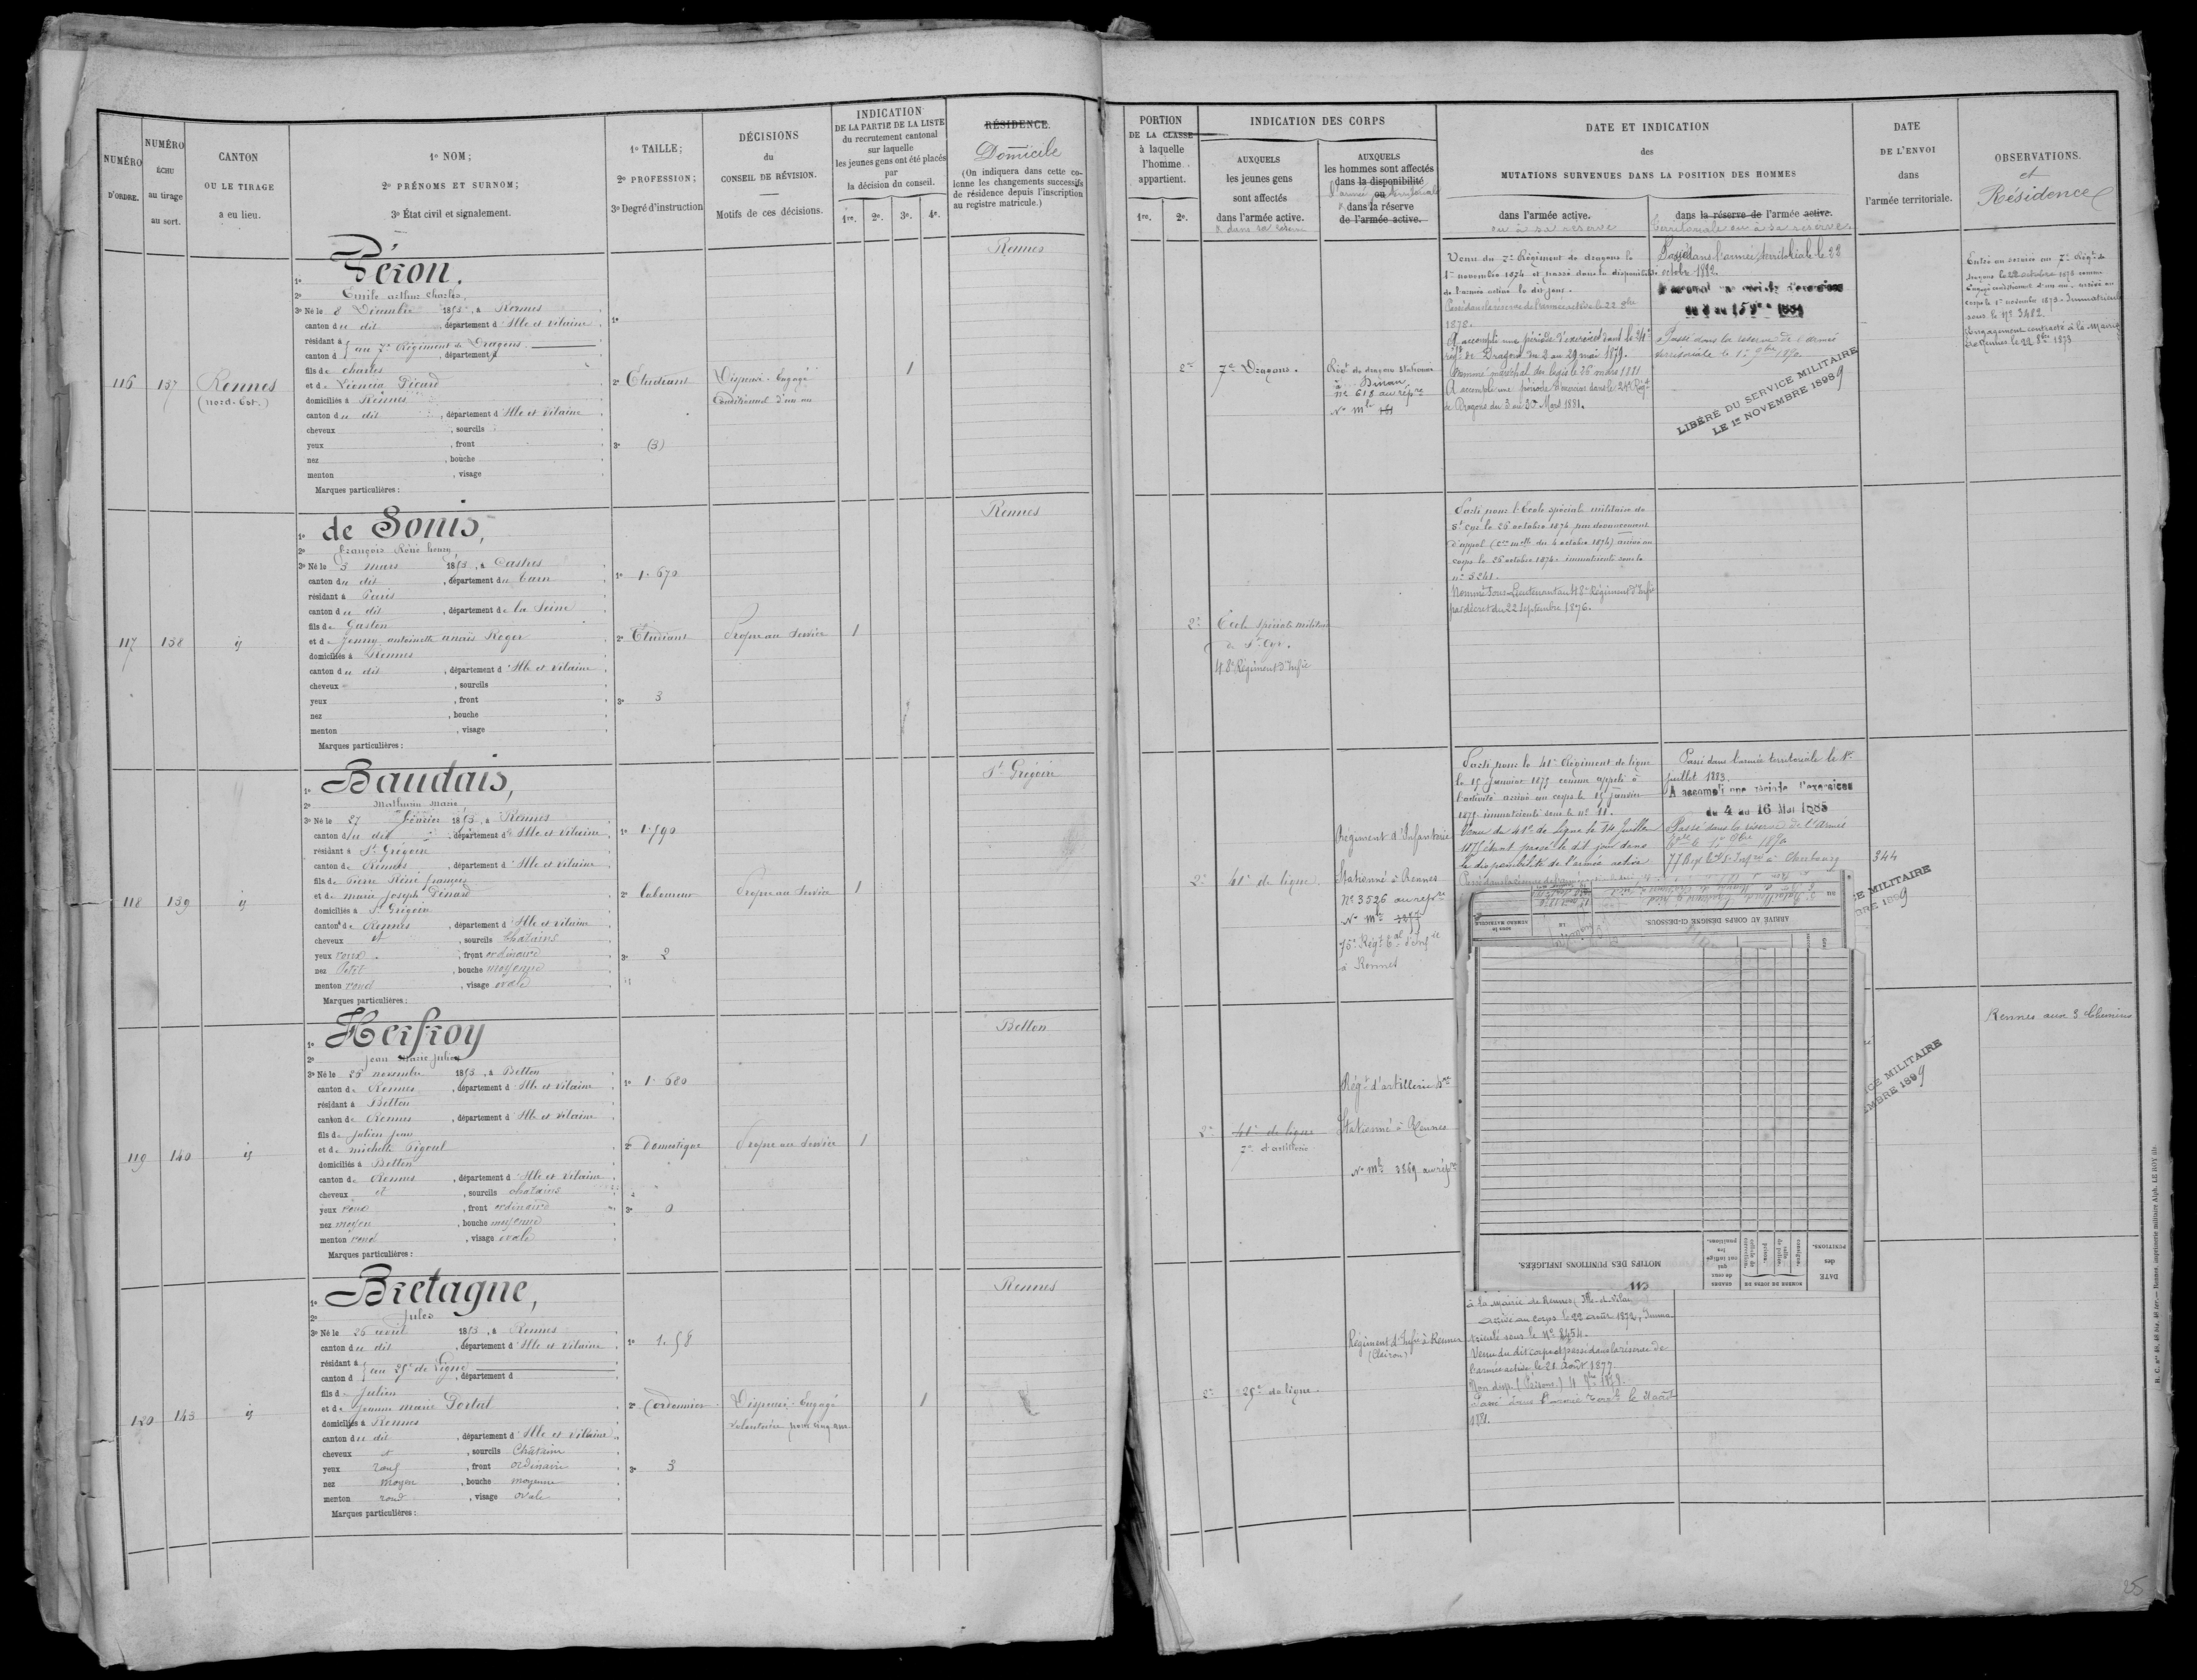 NUMÉRO
D'ORDRE.
NUMÉRO
ÉCHU
au tirage
au sort.
CANTON
OU LE TIRAGE
a eu lieu.
1º NOM;
2º PRÉNOMS ET SURNOM;
3º État civil et signalement.
1º TAILLE;
2º PROFESSION;
3º Degré d'instruction
DÉCISIONS
du
CONSEIL DE RÉVISION.
Motifs de ces décisions.
INDICATION
DE LA PARTIE DE LA LISTE
du recrutement cantonal
sur laquelle
les jeunes gens ont été placés
par
la décision du conseil.
1re. 2e. 3e. 4e.
RÉSIDENCE.
Domicile
(On indiquera dans cette co-
lonne les changements successifs
de résidence depuis l'inscription
au registre matricule.)
116
137
Rennes
(nord-Est.)
1º Péron,
2º Emile arthur charles,
3º Né le 8 Décembre 1853, à Rennes
canton du dit, département d'Ille et Vilaine
résidant à au 7e Régiment de Dragons.
canton d , département d
fils de charles
et de Léoncia Picard
domiciliés à Rennes
canton du dit, département d'Ille et Vilaine
cheveux , sourcils
yeux , front
nez , bouche
menton , visage
Marques particulières :
1º
2º Etudiant
3º (3)
Dispensé. Engagé
Conditionnel d'un an
1
Rennes
117
138
id
1º de Sonis,
2º François Réné henry
3º Né le 3 mars 1853, à Castres
canton du dit, département du Tarn
résidant à Paris
canton du dit, département de la Seine
fils de Gaston
et de Jenny antoinette anaïs Roger
domiciliés à Rennes
canton du dit, département d'Ille et Vilaine
cheveux , sourcils
yeux , front
nez , bouche
menton , visage
Marques particulières :
1º 1. 670
2º Etudiant
3º 3
Propre au Service
1
Rennes
118
139
id
1º Baudais,
2º Mathurin Marie
3º Né le 27 février 1853, à Rennes
canton du dit, département d'Ille et Vilaine
résidant à St Grégoire
canton de Rennes, département d'Ille et Vilaine
fils de Pierre Réné françois
et de marie Joseph Denard
domiciliés à St Grégoire
canton de Rennes, département d'Ille et Vilaine
cheveux et, sourcils Chatains
yeux roux, front ordinaire
nez Petit, bouche moyenne
menton rond, visage ovale
Marques particulières :
1º 1. 590
2º laboureur
3º 2
Propre au Service
1
St Grégoire
119
140
id
1º Herfroy
2º Jean Marie Julien
3º Né le 25 novembre 1853, à Betton
canton de Rennes, département d'Ille et Vilaine
résidant à Betton
canton de Rennes, département d'Ille et Vilaine
fils de Julien Jean
et de michelle Pigoul
domiciliés à Betton
canton de Rennes, département d'Ille et Vilaine
cheveux et, sourcils chatains
yeux roux, front ordinaire
nez moyen, bouche moyenne
menton rond, visage ovale
Marques particulières :
1º 1. 680
2º Domestique
3º 0
Propre au Service
1
Betton
120
143
id
1º Bretagne,
2º Jules
3º Né le 26 avril 1853, à Rennes
canton du dit, département d'Ille et Vilaine
résidant à au 25e de Ligne
canton d , département d
fils de Julien
et de Jeanne marie Portal
domiciliés à Rennes
canton du dit, département d'Ille et Vilaine
cheveux et, sourcils Châtains
yeux roux, front ordinaire
nez moyen, bouche moyenne
menton rond, visage ovale
Marques particulières :
1º 1. 58
2º Cordonnier
3º 3
Dispensé. Engagé
volontaire pour cinq ans
1
Rennes
PORTION
DE LA CLASSE
à laquelle
l'homme
appartient.
1re. 2e.
INDICATION DES CORPS
AUXQUELS
les jeunes gens
sont affectés
dans l'armée active.
& dans sa réserve
AUXQUELS
les hommes sont affectés
dans la disponibilité
ou
dans la réserve
de l'armée active.
DATE ET INDICATION
des
MUTATIONS SURVENUES DANS LA POSITION DES HOMMES
dans l'armée active.
ou à sa réserve
dans la réserve de l'armée active.
territoriale ou à sa réserve.
DATE
DE L'ENVOI
dans
l'armée territoriale.
OBSERVATIONS.
et
Résidence
2e
7e Dragons.
Régt de dragons stationné
à Dinan
Nº 618 au rép.re
Nº Mle
Venu du 7e Régiment de dragons le
1er novembre 1874 et passé dans la disponibilité
de l'armée active le dit jour.
Passé dans la réserve de l'armée active le 22 8bre
1878.
A accompli une période d'exercices dans le 24e
régt de Dragons du 2 au 29 mai 1879.
Nommé maréchal des logis le 26 mars 1881
A accompli une période d'exercices dans le 24e Régt
de Dragons du 3 au 30 Mars 1881.
Passé dans l'armée territoriale le 22
octobre 1882.
A accompli une période d'exercices
Passé dans la réserve de l'armée
territoriale le 1er 9bre 1890
LIBÉRÉ DU SERVICE MILITAIRE
LE 1er NOVEMBRE 1899
Entré au service au 7e Régt de
dragons le 22 octobre 1873 comme
engagé conditionnel d'un an, arrivé au
corps le 1er novembre 1873. Immatriculé
sous le Nº 3412
Engagement contracté à la Mairie
de Rennes le 22 8bre 1873
2e
Ecole Spéciale militaire
de St Cyr.
48e Régiment d'Infie
Parti pour l'Ecole spéciale militaire de
St Cyr le 26 octobre 1874 par devancement
d'appel (Dion mlle du 6 octobre 1874) arrivé au
corps le 26 octobre 1874. immatriculé sous le
nº 5241.
Nommé Sous-Lieutenant au 48e Régiment d'Infie
par décret du 22 Septembre 1876.
2e
41e de ligne
Régiment d'Infanterie
Stationné à Rennes
Nº 3526 au rép.re
Nº Mle
75e Régt tal d'Infie
à Rennes
Parti pour le 41e Régiment de ligne
le 15 Janvier 1875 comme appelé à
l'activité arrivé au corps le 15 Janvier
1875. immatriculé sous le nº 11.
Venu du 41e de ligne le 14 Juillet
1875 étant passé le dit jour dans
la disponibilité de l'armée active
Passé dans l'armée territoriale le 1er
juillet 1883.
A accompli une période d'exercices
du 4 au 16 Mai 1885
Passé dans la réserve de l'Armée
tle le 1er 9bre 1890
77 Régt tal d'Infie à Cherbourg
344
CE MILITAIRE
BRE 1899
ARRIVÉ AU CORPS DÉSIGNÉ CI-DESSOUS.
MOTIFS DES PUNITIONS INFLIGÉES.
NOMBRE DE JOURS DE
DATE
des
PUNITIONS.
113
2e
41e de ligne
7e d'artillerie
Régt d'artillerie
Stationné à Rennes
Nº Mle 3869 au rép.re
ICE MILITAIRE
EMBRE 1899
Rennes aux 3 Chemins
2e
25e de ligne.
Régiment d'Infie à Rennes
(Clairon)
à la Mairie de Rennes, Ille-et-Vilaine
arrivé au corps le 22 août 1872, Imma-
triculé sous le Nº 2454.
Venu du dit corps et passé dans la réserve de
l'armée active le 21 Août 1877
Non disp. (Prisons) 4 9bre 1878.
Passé dans l'armée Torle le 21 août
1881.
H. C. nos 48, 48 bis, 48 ter. — Rennes, imprimerie militaire Alph. LE ROY fils.
25